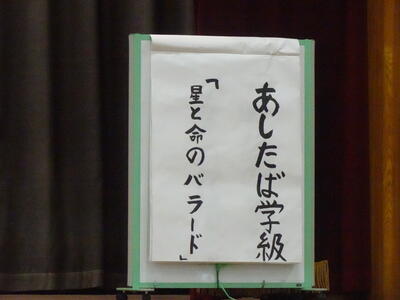 あしたば学級
「星と命のバラード」